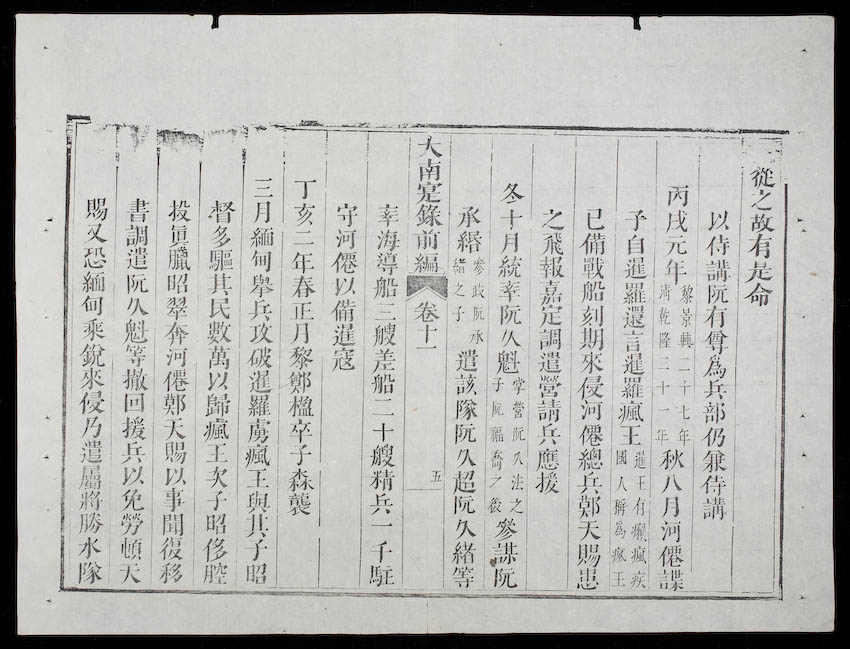 從之故有是命
以侍講阮有尊爲兵部仍兼侍講
丙戌元年黎景興二十七年清乾隆三十一年秋八月河僊諜
子自暹羅還言暹羅瘋王暹王有癩瘋疾國人稱爲瘋王
已備戰船刻期來侵河僊總兵鄭天賜患
之飛報嘉定調遣營請兵應援
冬十月統率阮久魁掌營阮久法之子阮福喬之後參謀阮
承緡參政阮承緒之子遣該隊阮久超阮久緒等
大南寔錄前編
卷十一
五
率海導船三艘差船二十艘精兵一千駐
守河僊以備暹寇
丁亥二年春正月黎鄭楹卒子森襲
三月緬甸舉兵攻破暹羅虜瘋王與其子昭
督多驅其民數萬以歸瘋王次子昭侈腔
投眞臘昭翠奔河僊鄭天賜以事聞復移
書調遣阮久魁等撤回援兵以免勞頓天
賜又恐緬甸乘銳來侵乃遣屬將勝水隊